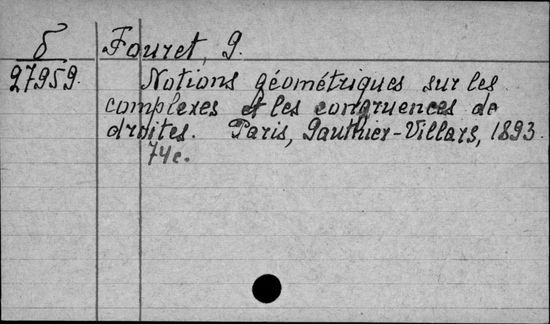 б Fouret, G.
27959. Notions géométriques sur les
complexes et les congruences de
droites. Paris, Gauthier-Villars, 1893.
74c.